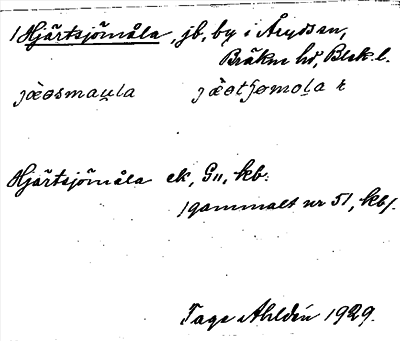 / Hjärtsjömåla, jb, by i Åryd sn,
Bräkne hd, Blek. l.
jæ̀əsmau̯la jæ̀ətʃømoḷa r
Hjärtsjömåla ek, Gu, kb.
/gammalt nr 51, kb/.
Tage Ahldén 1929.